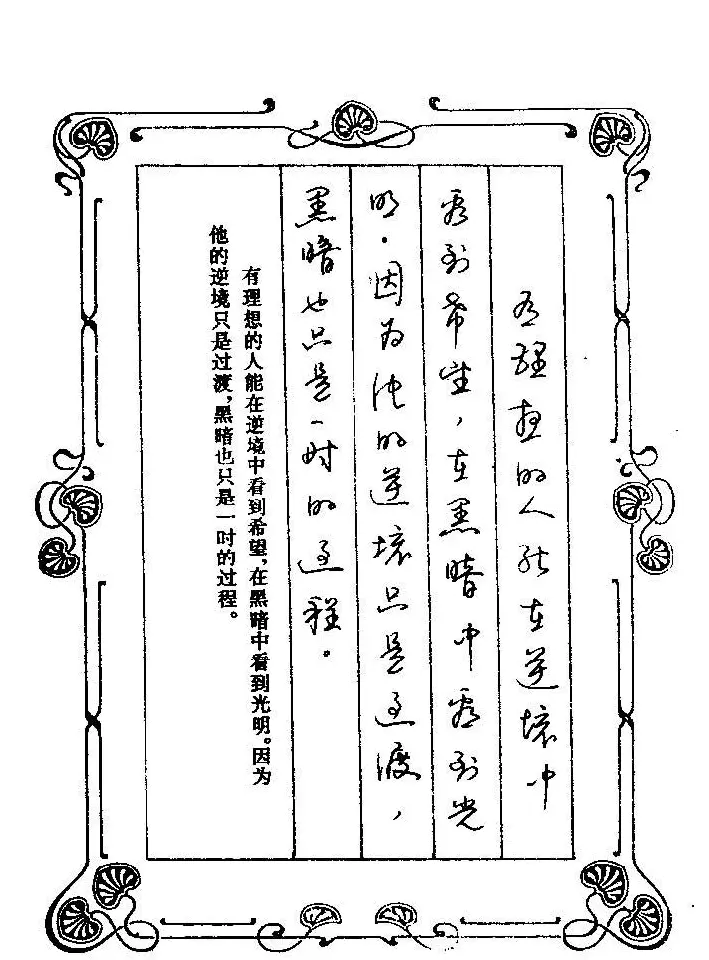 有理想的人能在逆境中
看到希望，在黑暗中看到光
明。因为他的逆境只是过渡，
黑暗也只是一时的过程。
有理想的人能在逆境中看到希望，在黑暗中看到光明。因为
他的逆境只是过渡，黑暗也只是一时的过程。